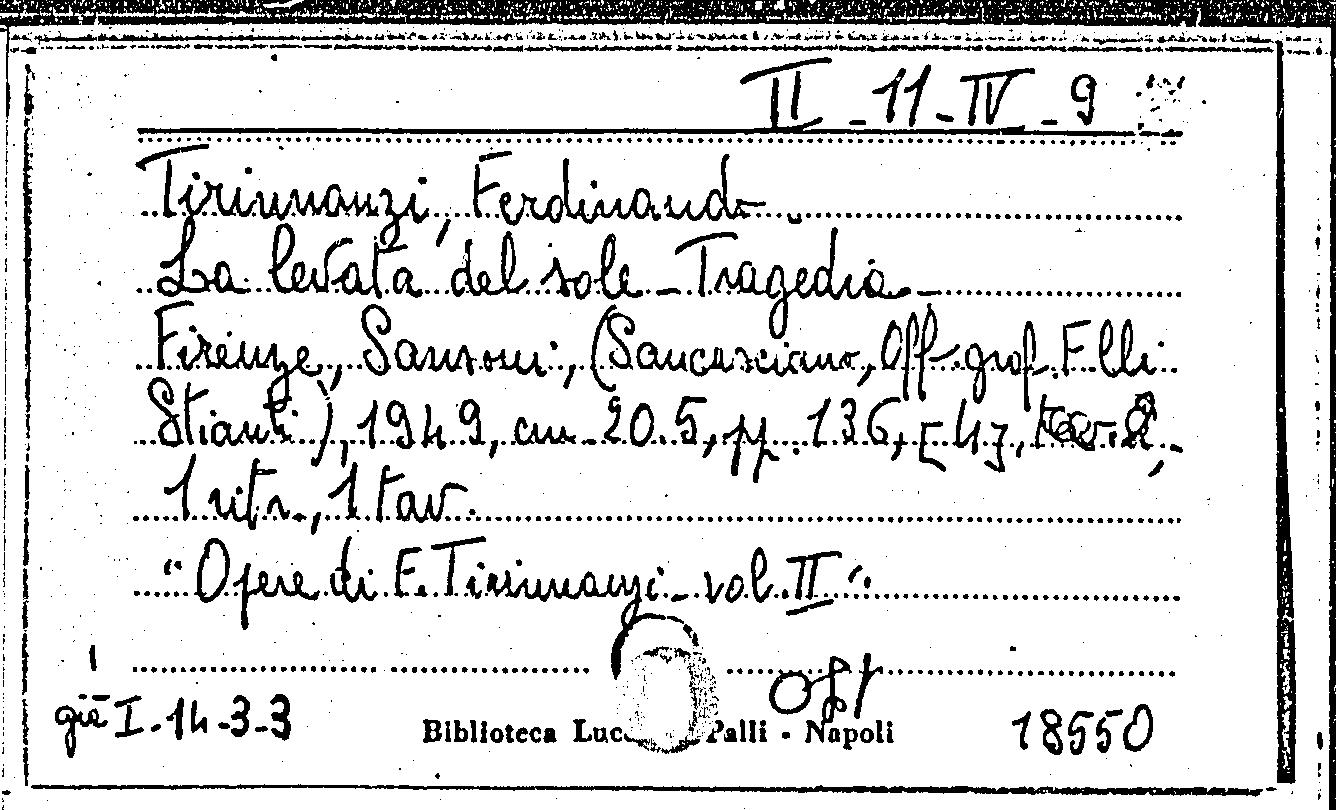 II - 11 - IV - 9
Tirinnanzi, Ferdinando.
La levata del sole - Tragedia -
Firenze, Sansoni, (Sancasciano, Off. graf. F.lli
Stianti), 1949, cm. 20.5, pp. 136, [4],
1 ritr., 1 tav.
"Opere di F. Tirinnanzi - vol. II".
già I-14-3-3
Biblioteca Luc Palli - Napoli
18550